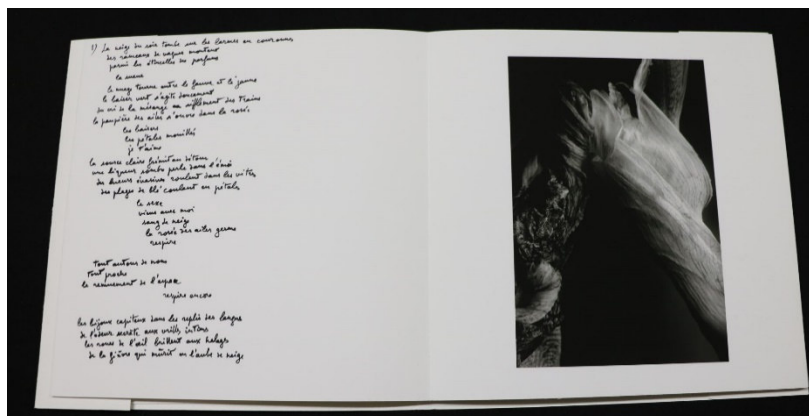 1) La neige du soir tombe sur les larmes en couronnes
des rameaux de vagues montent
parmi les étincelles des parfums
la sueur
le nuage tourne entre le fauve et le jaune
le baiser vert s'agite doucement
du cri de la mésange au sifflement des trains
la paupière des ailes s'ancre dans la rosée
les baisers
les pétales mouillés
je t'aime
la source claire frémit au détour
une liqueur sombre perle dans l'été
des lueurs évasives roulent dans les
des plages de blé coulent en pétales
le sexe
viens avec moi
sang de neige
la rosée des ailes germe
respire
tout autour de nous
tout proche
le remuement de l'espace
respire encore
les bijoux capiteux dans les replis des langes
de l'odeur secrète aux vrilles
les roues de l'œil brillent aux
de la fièvre qui mûrit en l'aube de neige